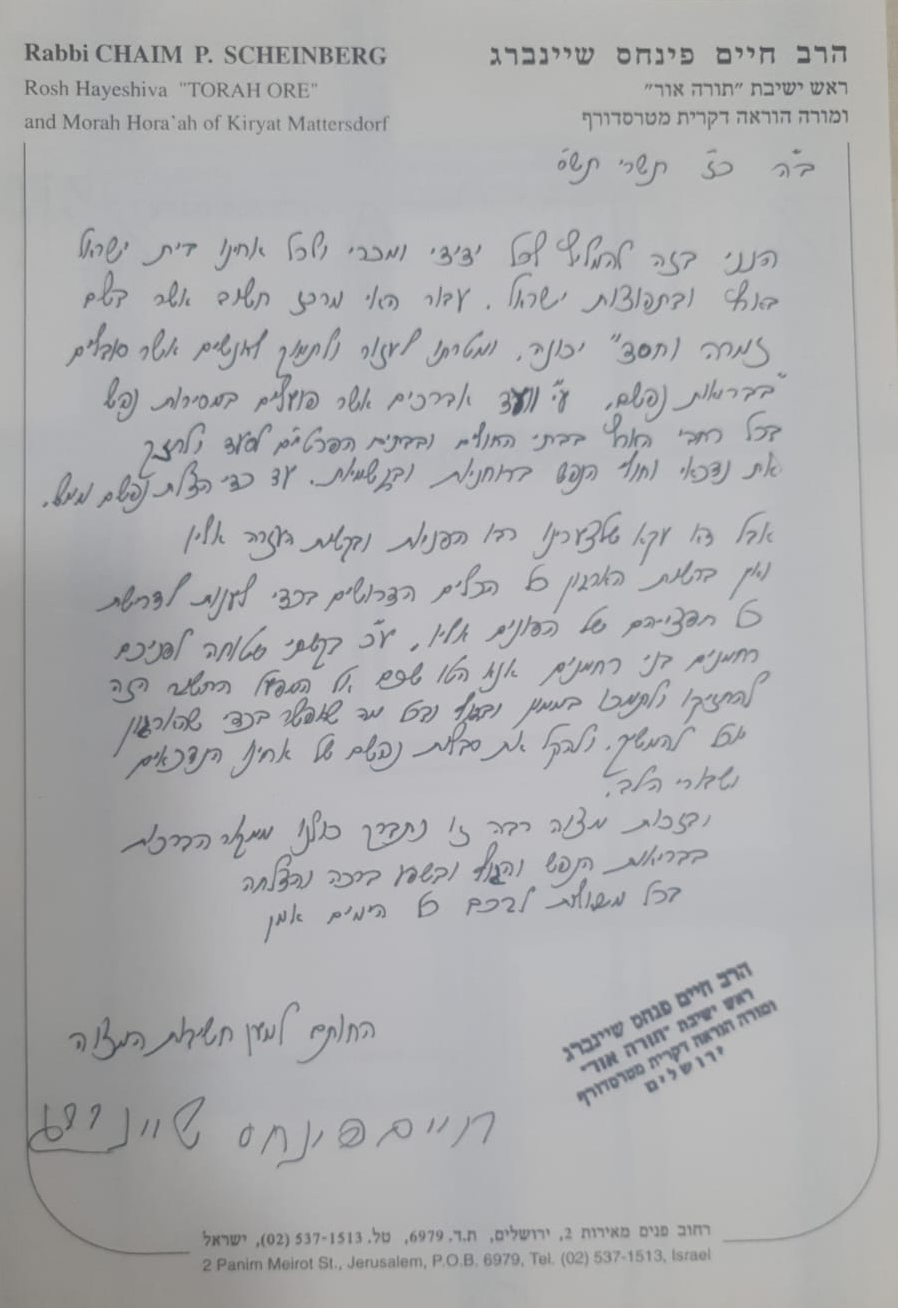 Rabbi CHAIM P. SCHEINBERG
הרב חיים פינחס שיינברג
Rosh Hayeshiva "TORAH ORE"
ראש ישיבת "תורה אור"
and Morah Hora'ah of Kiryat Mattersdorf
ומורה הוראה דקרית מטרסדורף
ב"ה כז תשרי תש"ס
הנני בזה להמליץ לכל ידידי ומכרי ולכל אחינו בית ישראל
בארץ ובתפוצות ישראל. עבור האי מרכז חשוב אשר בשם
זמרה וחסד" יכונה, ומטרתו לעזור ולתמוך לאנשים אשר סובלים
בבריאות נפשם, ע"י וועד אברכים אשר פועלים במסירות נפש
בכל רחבי הארץ בבתי החולים ובבתים הפרטיים לסעד ולחזק
את נדכאי וחולי הנפש ברוחניות ובגשמיות. עד כדי הצלת נפשם ממש.
אבל דא עקא שלצערינו רבו הפניות ובקשות העזרה אליו
ואין ברשות הארגון כל הכלים הדרושים בכדי לענות לדרישת
כל חפצייהם של הפונים אליו, ע"כ בקשתי שטוחה לפניכם
רחמנים בני רחמנים אנא הטו שכם אל המפעל החשוב הזה
להחזיקו ולתמכו בממון ובגוף ובכל מה שאפשר בכדי שהארגון
יוכל להמשיך. ולהקל את סבלות נפשם של אחינו הנדכאים
ושבורי הלב.
ובזכות מצוה רבה זו נתברך כולנו ממקור הברכות
בבריאות הנפש והגוף ובשפע ברכה והצלחה
בכל משאלות לבכם כל הימים אמן
החותם למען חשיבות המצוה
חיים פינחס שיינברג
הרב חיים פנחס שיינברג
ראש ישיבת "תורה אור"
ומורה הוראה דקרית מטרסדורף
ירושלים
רחוב פנים מאירות 2, ירושלים, ת.ד. 6979, טל. 537-1513 (02), ישראל
2 Panim Meirot St., Jerusalem, P.O.B. 6979, Tel. (02) 537-1513, Israel